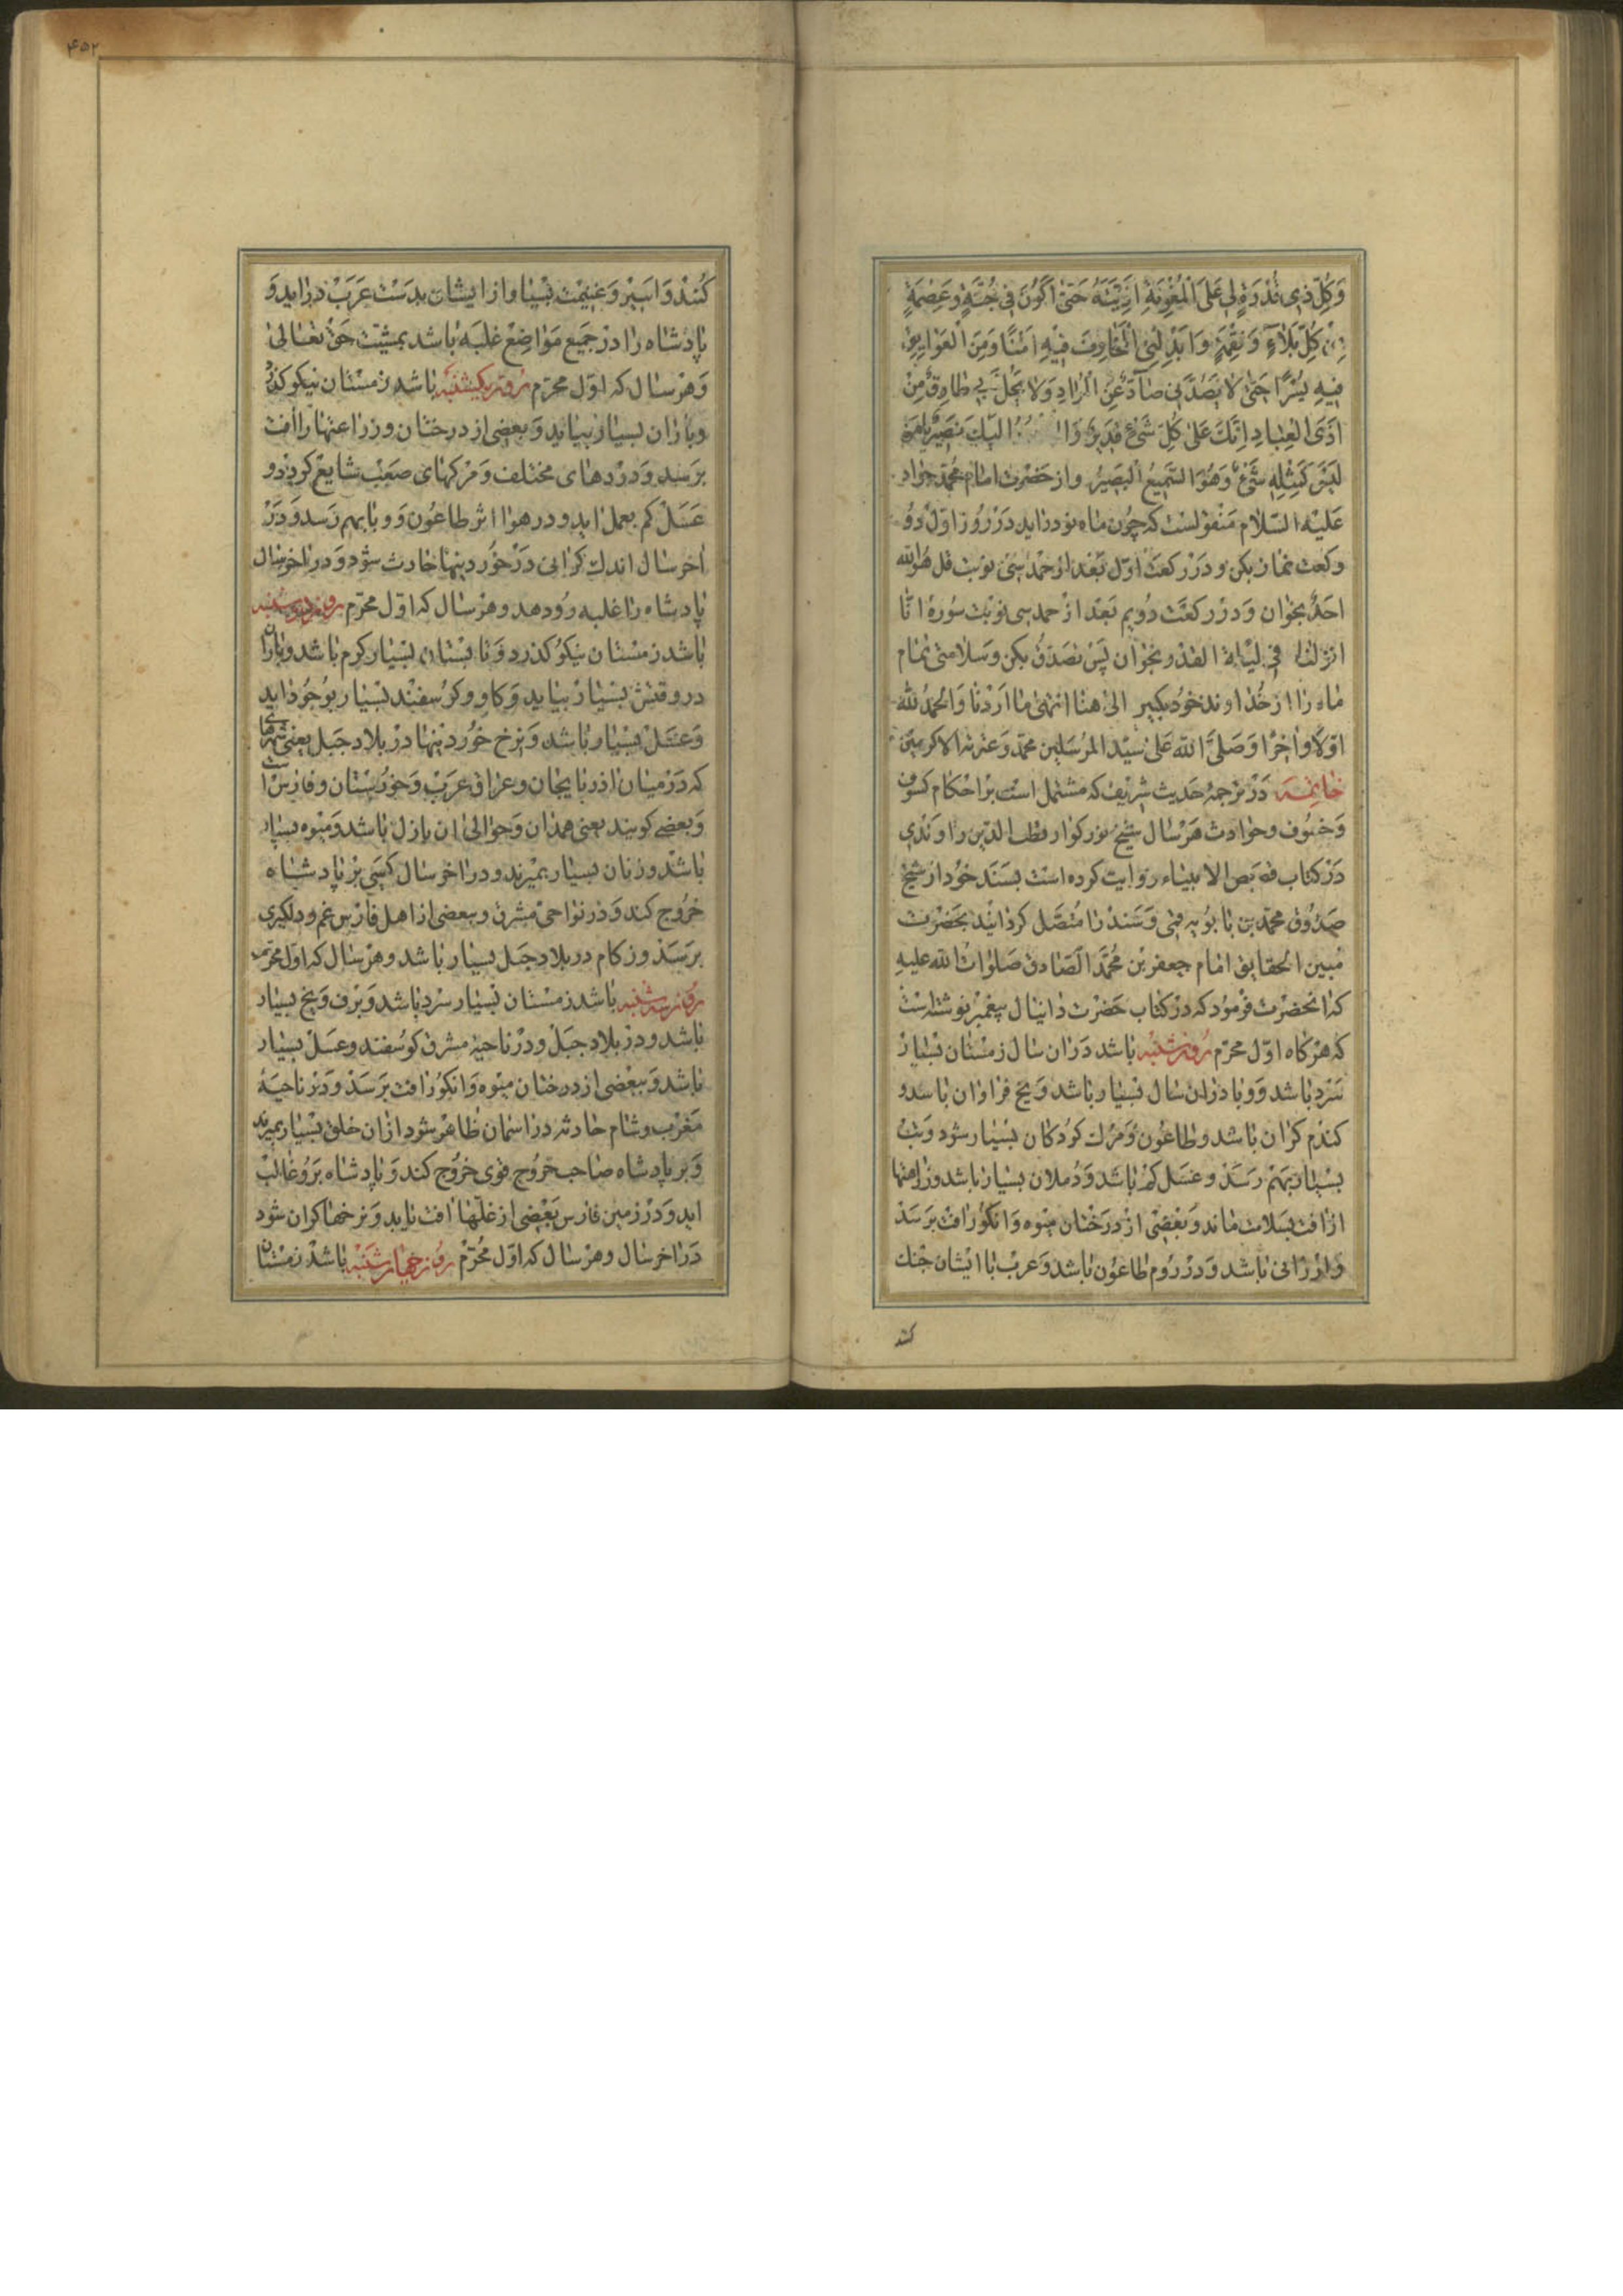 وَكُلِّ ذِي قُدْرَةٍ لِي عَلَى الْمَعُونَةِ اَذِيَّتَهُ حَتّىٰ اَكُونَ فِي جُنَّةٍ وَعِصْمَةٍ
مِنْ كُلِّ بَلاءٍ وَنِقْمَةٍ وَاَبْدِلْنِي الْمَخَاوِفَ فِيهِ اَمْنًا وَمِنَ الْعَوَايِقِ
فِيهِ يُسْرًا حَتّىٰ لا يَصُدَّنِي صَآدٌّ عَنِ الْمُرَادِ وَلا يَحُلَّ بِي طَارِقٌ مِنْ
اَذَى الْعِبَادِ اِنَّكَ عَلىٰ كُلِّ شَيْءٍ قَدِيرٌ اِلَيْكَ تَصِيرُ يَا مَنْ
لَيْسَ كَمِثْلِهِ شَيْءٌ وَهُوَ السَّمِيعُ الْبَصِيرُ واز حَضْرت امام محمّد جواد
عَلَيْهِ السّلام مَنْقولست كه چُون ماه نو درايد دَرْ رُوز اوّل دُو
ركعت نماز بكن و دَرْ ركعَت اوّل بَعْد از حَمْد سى نوبَت قل هُو الله
احَدٌ بخوان وَ درْ ركعَت دُويم بَعْد ازْ حمد سى نوبْت سُورهٔ انّا
انزلناه في ليْلة القدْر بخوان پَسْ تصَدّق بكن و سَلامتى تمام
ماه را از خُداوند خودْ بكير الى هنا انتهىٰ ما اَرَدْنا وَالحَمدُ للّٰه
اوّلًا واٰخِرًا وَصَلّى الله عَلىٰ سيّد المرْسَلين محمّد وَعترته الاكرمين
خاتمه دَرْ ترجمهٔ حَديث شريف كه مشتمل است برْ احْكام كسُوف
وَخسُوف وحوادث هَرْسال شيْخ بزركوار قطب الدّين راوَندى
دَرْ كتاب قصَص الانبياء روايت كرده است بسَنَد خُود از شيخ
صَدُوق محمّد بن بابوُيه قمى وَسَندْ را مُتصَل كردانيْد بحَضْرت
مُبين الحقايق امام جعفر بْن مُحمّد الصّادق صَلوات الله عليهِ
كه انحضْرت فرْمود كه درْ كتاب حَضرت دانيال پيغمبر نوشته است
كه هرْكاه اوّل محرّم روز شنبه باشد دَر ان سال زمسْتان بسْيار
سَرْد باشد وَ وبا در ان سال بسْيار باشد وَ يخ فراوان باشدو
كندم كران باشد وطاعُون وَمرْك كودكان بسْيار شود وَتبْ
بسْيار بهَمْ رَسَدْ و عسَل كم باشد وَ دُملان بسيار باشد وزراعتها
از افت بسَلامت ماند وَبعْضى ازْ درَختان ميْوه وَ انكور افت برَسَدْ
وَارْزانى باشد وَ درْ رُوم طاعُون باشد وَ عربْ با ايشان جنك
كند
۴۵۲
كُنندْ وَ اسَيْر وَغنيْمت بسْيار از ايشان بدسْت عَرَبْ درايد وَ
پادْشاه را درْ جَميع مَواضِعْ غلبَه باشد بمشيّت حَقْ تعالىٰ
وَ هرْسال كه اوّل محرّم روز يكشنبه باشد زمسْتان نيكو كذرد
وباران بسيار بيايد وَ بعضى از درختان وزراعتها را افت
برَسد وَ درْدهاى مختلف وَ مرْكهاى صَعْب شايع كردد و
عَسَل كم بعمل ايد و در هوا اثر طاعُون وَ وبا بهم رَسد وَ دَرْ
اٰخر سال اندك كرانى دَرْ خُوردنيها حادث شود وَ در اخر سال
پادشاه را غلبه رُو دهد و هرْسال كه اوّل محرّم روز دوشنبه
باشد زمسْتان نيكو كذرد وَ تابستان بسْيار كرم باشد وباران
در وقتش بسْيار بيايد وَ كاو و كوسفنْد بسْيار بوجود ايد
وَ عسَلْ بسْيار باشد وَ نرخ خوُردنيها درْ بلاد جَبل يعنى شهرهائى
كه دَرْ ميان اذربايجان وعراق عرَبْ وَ خوزسْتان و فارسْ است
وَ بعضى كويند يعنى همدان وَ حوالى ان نازل باشد وَ ميْوه بسيار
باشد وزنان بسيار بميْرند و در اخر سال كسَى برْ پادشاه
خرُوج كند وَ در نواحى مشرق و ببعضى از اهل فارس غم و دلكيرى
برَسَدْ و زكام در بلاد جبَل بسيار باشد وهرْسال كه اول محرّم
روز سه شنبه باشد زمسْتان بسْيار سرْد باشد وَ برْف وَ يخ بسيار
باشد و درْ بلاد جبَلْ و درْ ناحيهٔ مشرق كوسفند و عسَلْ بسيار
باشد وَ ببعْضى از درختان ميْوه وَ انكور افت برَسَدْ و دَرْ ناحيَهٔ
مَغرْب و شام حادثه در اسمان ظاهر شود از ان خلق بسْيار بميرند
وَ بر پادشاه صاحب خروُج قوى خروُج كند وَ پادشاه برُو غالبْ
ايد وَ درْ زمين فارس بعْضى از غلّها افت يابد وَ نرخها كران شود
دَر اخر سال وهرْسال كه اوّل مُحرّم روز چهارشنبه باشد زمسْتان